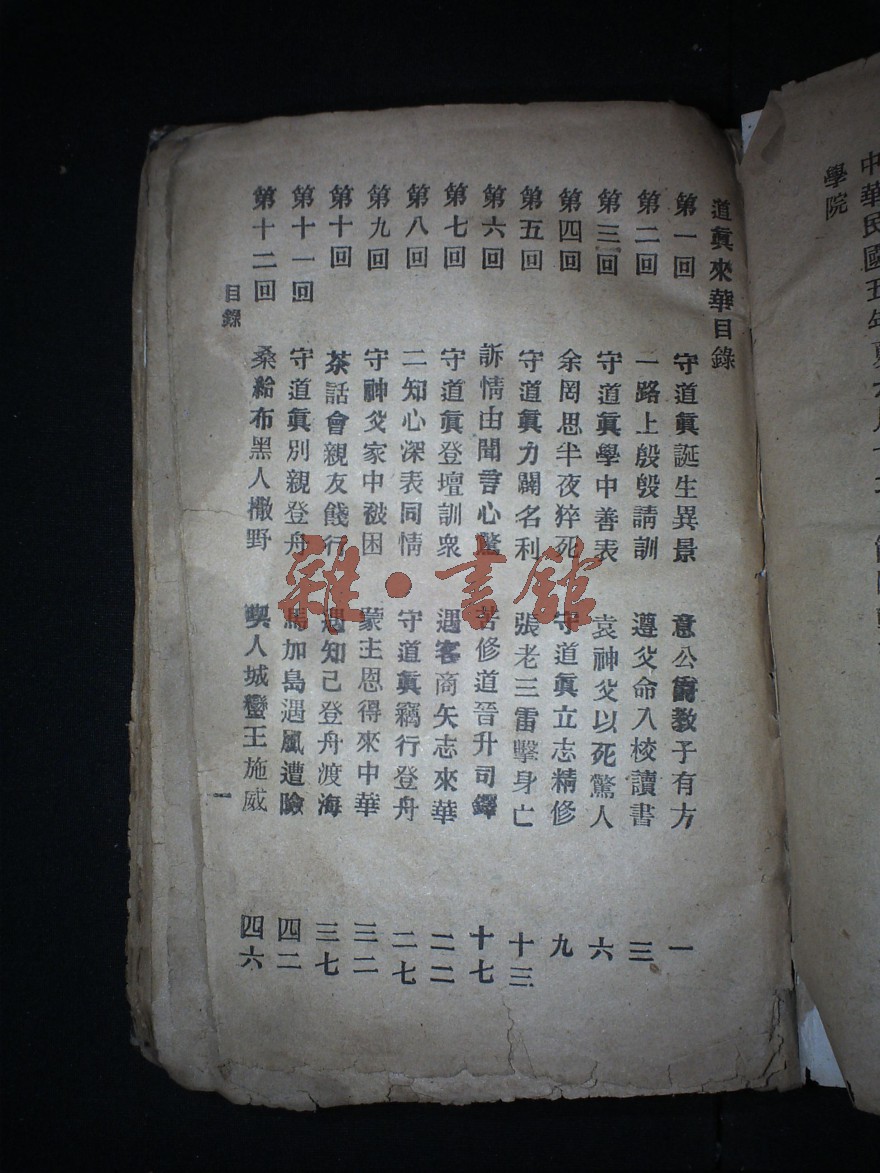 中華民國五年
學院
道眞來華目錄
第一回 守道眞誕生異景 意公爵教子有方 一
第二回 一路上殷殷請訓 遵父命入校讀書 三
第三回 守道眞學中善表 袁神父以死驚人 六
第四回 余罔思半夜猝死 守道眞立志精修 九
第五回 守道眞力闢名利 張老三雷擊身亡 十三
第六回 訴情由聞言心驚 苦修道晉升司鐸 十七
第七回 守道眞登壇訓衆 遇客商矢志來華 二二
第八回 二知心深表同情 守道眞竊行登舟 二七
第九回 守神父家中被困 蒙主恩得來中華 三二
第十回 茶話會親友餞行 遇知己登舟渡海 三七
第十一回 守道眞別親登舟 馬加島遇風遭險 四二
第十二回 桑給布黑人撒野 喫人城蠻王施威 四六
目錄 一
雜·書館